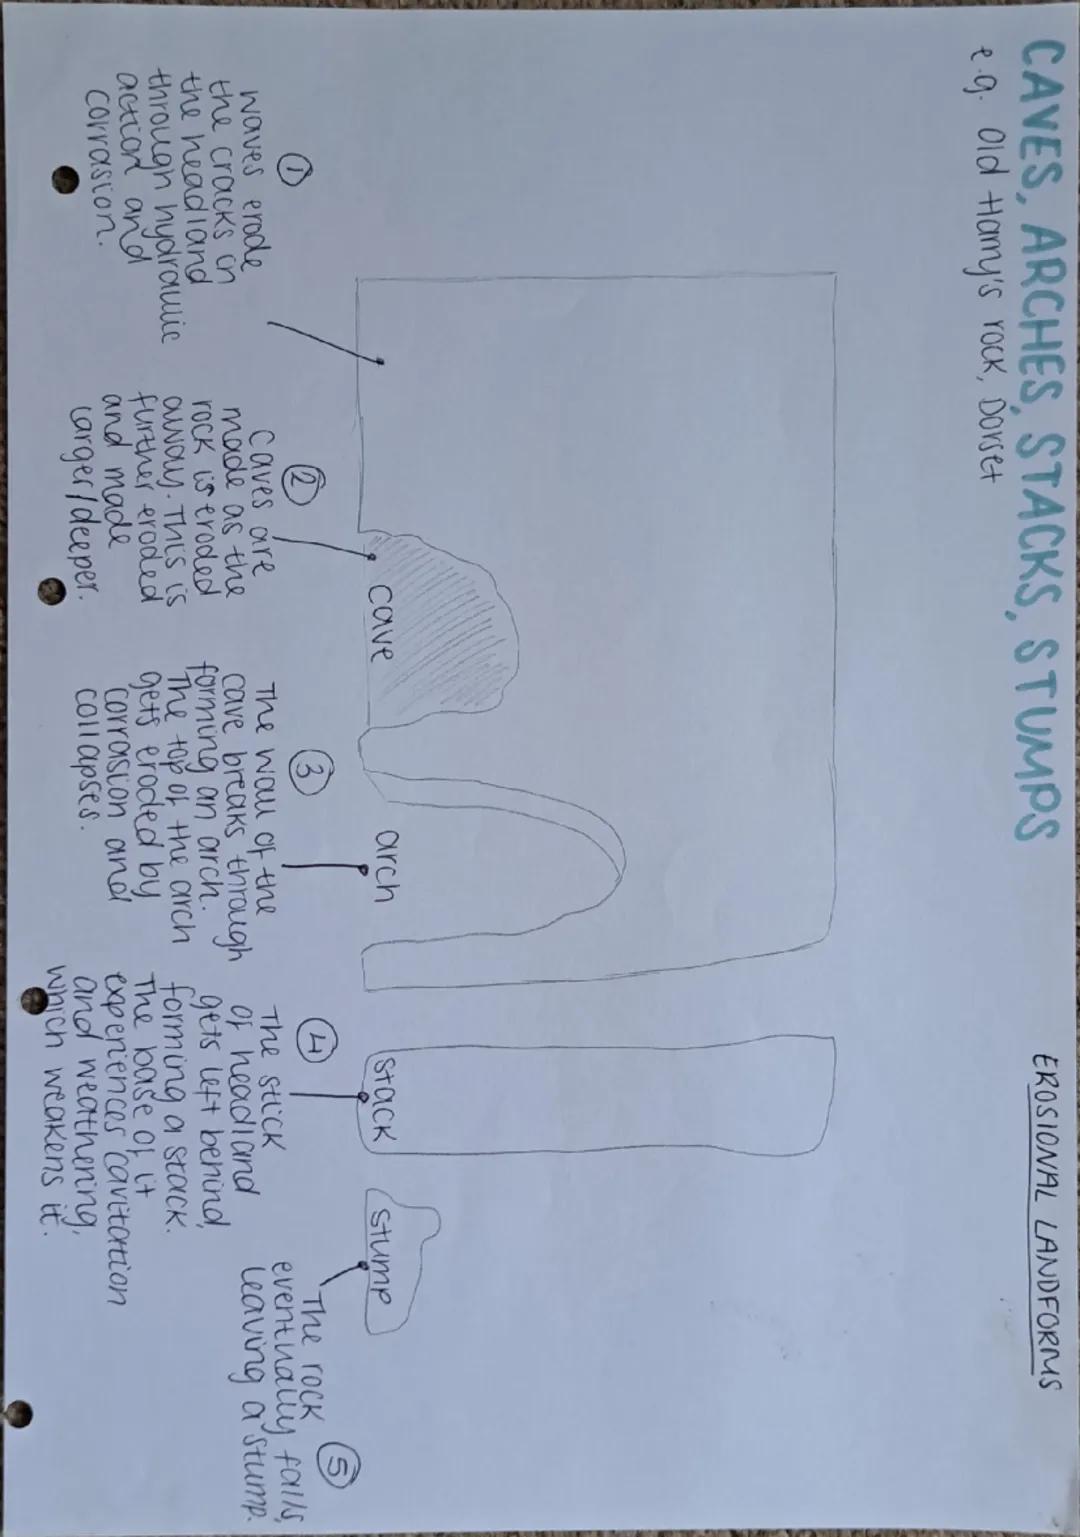 CAVES, ARCHES, STACKS, STUMPS
EROSIONAL LANDFORMS
e.g. Old Harry's rock, Dorset
cave
arch
stack
stump
①
waves erode
the cracks in
the headland
through hydraulic
action and
corrasion.
②
Caves are
made as the
rock is eroded
away. This is
further eroded
and made
larger/deeper.
③
The wall of the
cave breaks through
forming an arch.
The top of the arch
gets eroded by
corrasion and
collapses.
④
The stick
of headland
gets left behind,
forming a stack.
The base of it
experiences cavitation
and weathering,
which weakens it.
⑤
The rock
eventually falls,
leaving a stump.